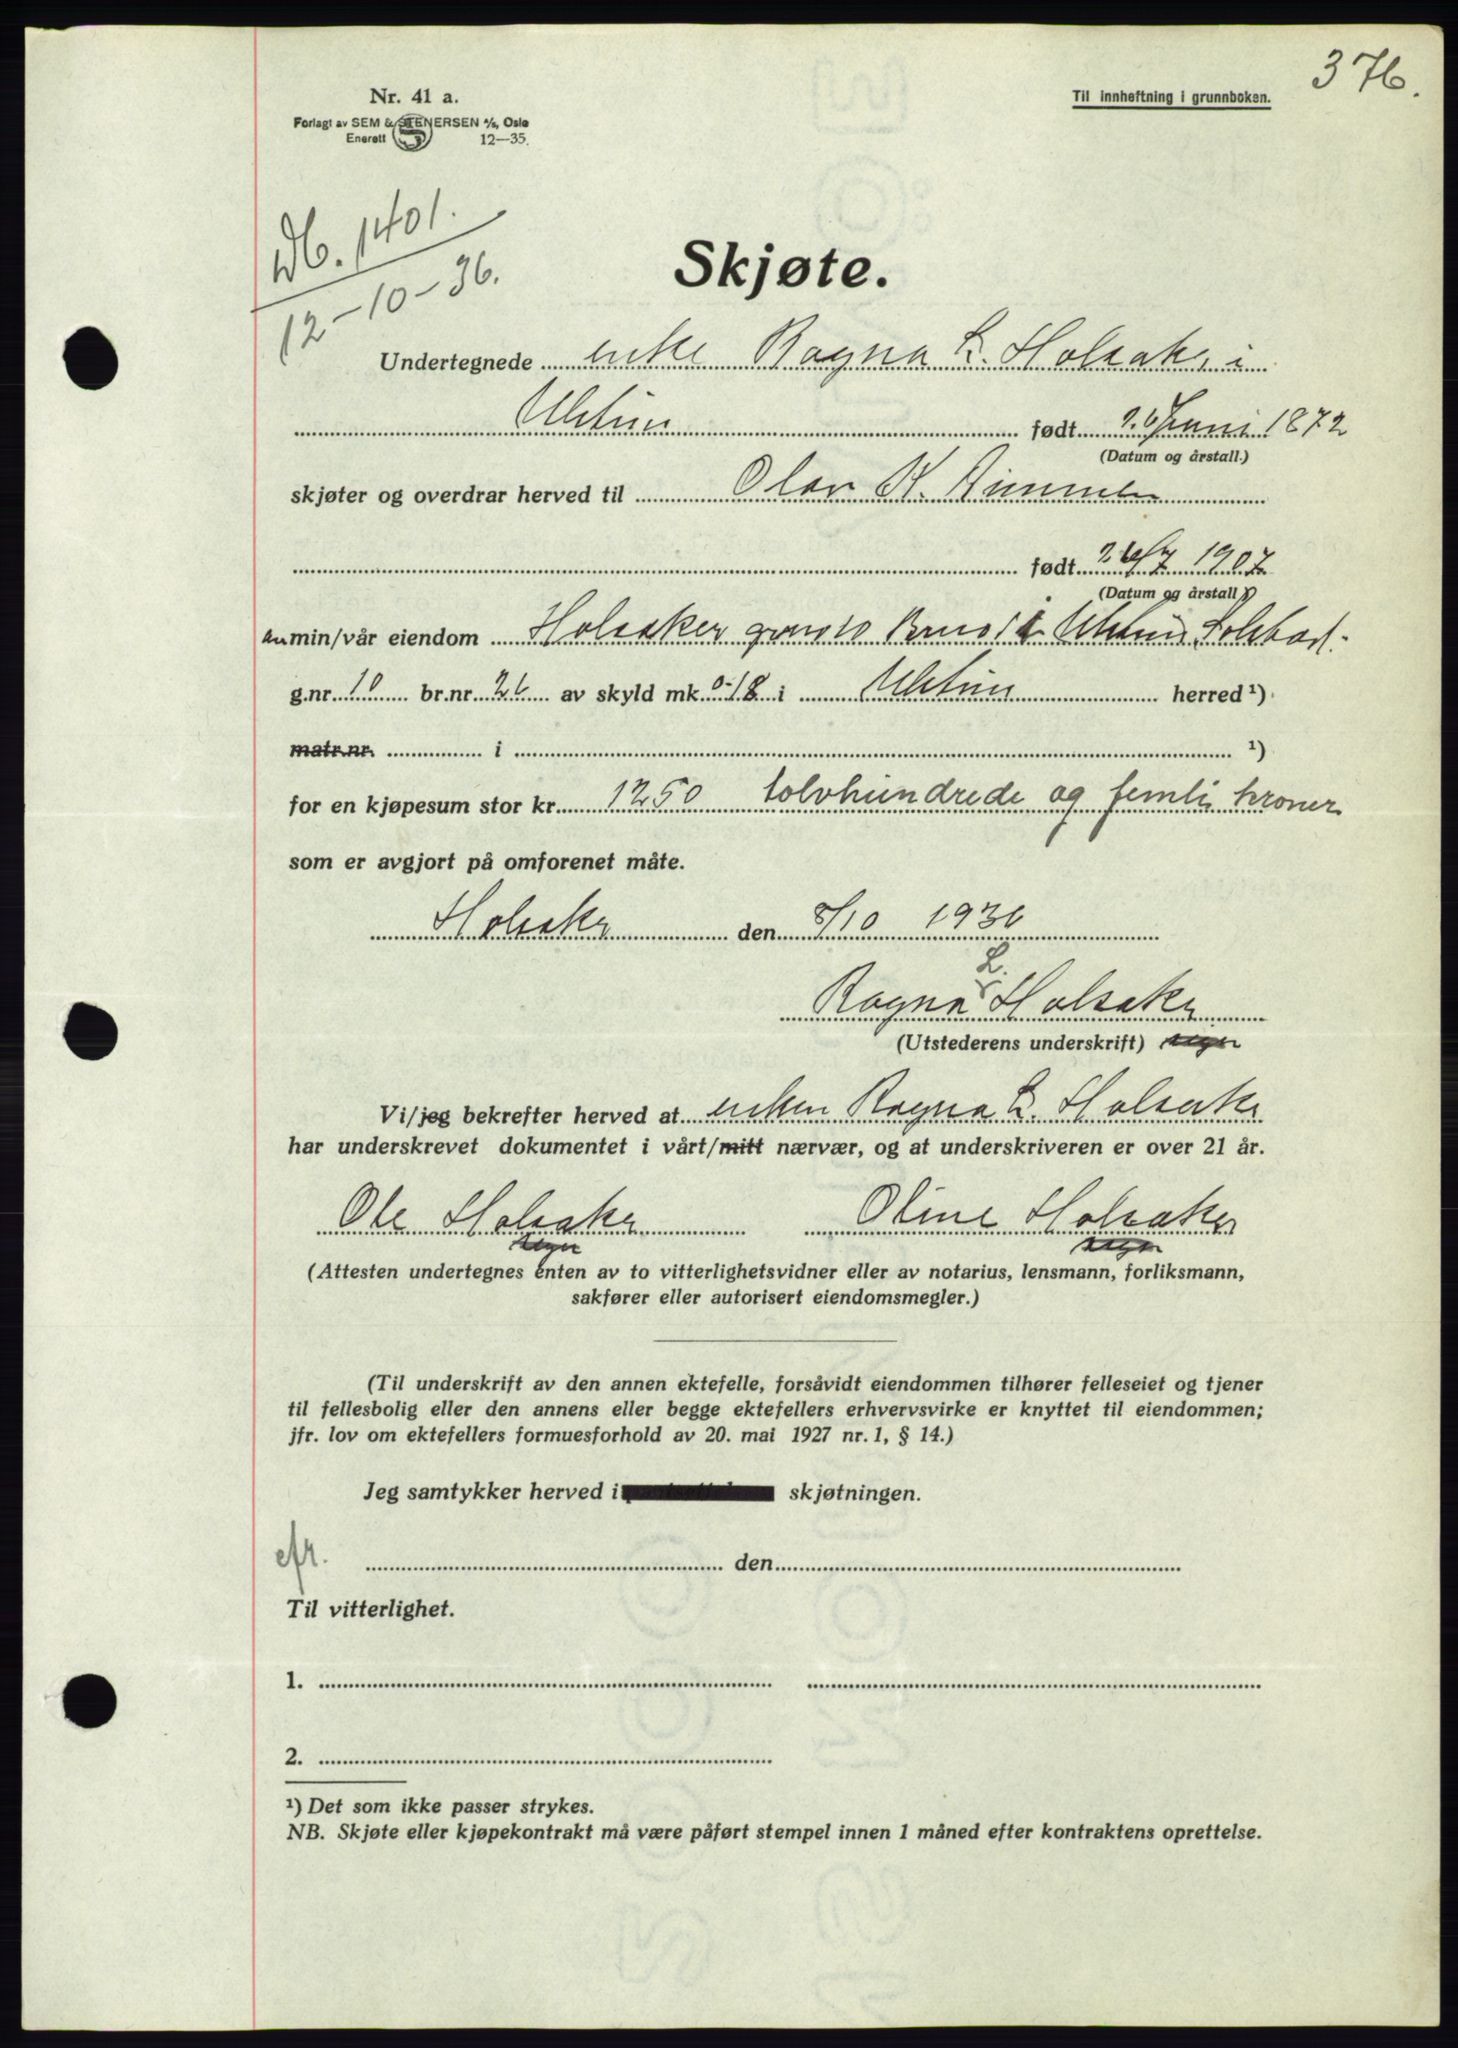 376.
Nr. 41 a.
Til innheftning i grunnboken.
Forlagt av SEM & STENERSEN A/S, Oslo
Enerett 12—35.
Db. 1401.
12-10-36.
Skjøte.
Undertegnede enke Ragna L. Holsaker i
Ulstein født 26 Juni 1872
(Datum og årstall.)
skjøter og overdrar herved til Olav K. Dimmen
født 26/7 1907
(Datum og årstall.)
av min/vår eiendom Holsaker i Ulstein,
g.nr. 10 br.nr. 26 av skyld mk. 0-18 i Ulstein herred ¹)
matr.nr. i ¹)
for en kjøpesum stor kr. 1250 tolvhundrede og femti kroner
som er avgjort på omforenet måte.
Holsaker den 8/10 1936
L.
Ragna Holsaker
(Utstederens underskrift)
Vi/jeg bekrefter herved at enken Ragna L. Holsaker
har underskrevet dokumentet i vårt/mitt nærvær, og at underskriveren er over 21 år.
Ole Holsaker Oline Holsaker
(Attesten undertegnes enten av to vitterlighetsvidner eller av notarius, lensmann, forliksmann,
sakfører eller autorisert eiendomsmegler.)
(Til underskrift av den annen ektefelle, forsåvidt eiendommen tilhører felleseiet og tjener
til fellesbolig eller den annens eller begge ektefellers erhvervsvirke er knyttet til eiendommen;
jfr. lov om ektefellers formuesforhold av 20. mai 1927 nr. 1, § 14.)
Jeg samtykker herved i skjøtningen.
efr. den
Til vitterlighet.
1.
2.
¹) Det som ikke passer strykes.
NB. Skjøte eller kjøpekontrakt må være påført stempel innen 1 måned efter kontraktens oprettelse.